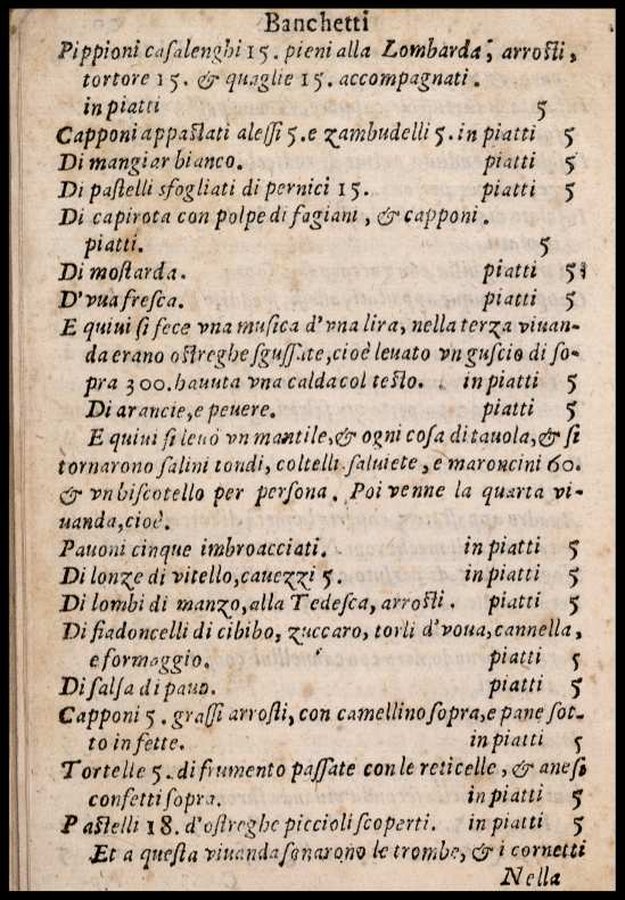 Banchetti
Pippioni casalenghi 15. pieni alla Lombarda, arrosti,
tortore 15. & quaglie 15. accompagnati.
in piatti 5
Capponi appastati alessi 5. e zambudelli 5. in piatti 5
Di mangiar bianco. piatti 5
Di pastelli sfogliati di pernici 15. piatti 5
Di capirota con polpe di fagiani, & capponi.
piatti. 5
Di mostarda. piatti 5
D'vua fresca. piatti 5
E quiui si fece vna musica d'vna lira, nella terza viuan-
da erano ostreghe sgussate, cioè leuato vn guscio di so-
pra 300. hauuta vna calda col testo. in piatti 5
Di arancie, e peuere. piatti 5
E quiui si leuò vn mantile, & ogni cosa di tauola, & si
tornarono salini tondi, coltelli saluiete, e maroncini 60.
& vn biscotello per persona. Poi venne la quarta vi-
uanda, cioè.
Pauoni cinque imbroacciati. in piatti 5
Di lonze di vitello, cauezzi 5. in piatti 5
Di lombi di manzo, alla Tedesca, arrosti. piatti 5
Di fiadoncelli di cibibo, zuccaro, torli d'voua, cannella,
e formaggio. piatti 5
Di salsa di pauo. piatti 5
Capponi 5. grassi arrosti, con camellino sopra, e pane sot-
to in fette. in piatti 5
Tortelle 5. di frumento passate con le reticelle, & anesi
confetti sopra. in piatti 5
Pastelli 18. d'ostreghe piccioli scoperti. in piatti 5
Et a questa viuanda sonarono le trombe, & i cornetti
Nella